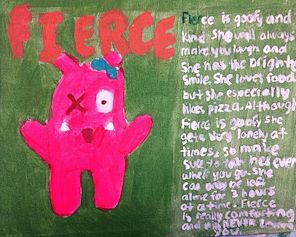 FIERCE
Fierce is goofy and
kind. She will always
make you laugh and
She has the brightest
Smile. She loves food
but She especially
likes pizza. Although
Fierce is goofy she
gets very lonely at
times, so make
Sure to take her ever
where you go. She
can only be left
alone for 3 hours
at a time. Fierce
is really comforting
and will NEVER